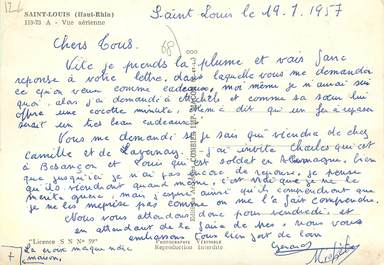 SAINT-LOUIS (Haut-Rhin)
115-73 A - Vue aérienne
Saint Louis le 19.7.1957
Chers Tous.
Vite je prends la plume et vais faire
reponse à votre lettre, dans laquelle vous me demandez
ce qu'on veut comme cadeaux, moi même je n'aurai sui
quoi. alors j'ai demandé à Michèle et comme sa sœur lui
offre une cocotte minute, elle m'a dit qu'un fer à repasser
serait un tres beau cadeau.
Vous me demandez si je sais qui viendra de chez
Camille et de Lavenay. j'ai invité Charles qui est
à Besançon et Louis qui est soldat en Allemagne, bien
que jusqu'ici je n'ai pas encore de reponse, je pense
qu'ils viendront quand même, c'est vrai que je ne le
merite guère, mais j'espère ainsi qu'ils comprendront que
je ne les meprise pas comme on me l'a fait comprendre.
Nous vous attendons donc pour vendredi, et
en attendant de la joie de vous nous vous
embrassons tous bien fort de loin
"Licence S N N° 39"
PHOTOGRAPHIE VÉRITABLE
Reproduction Interdite